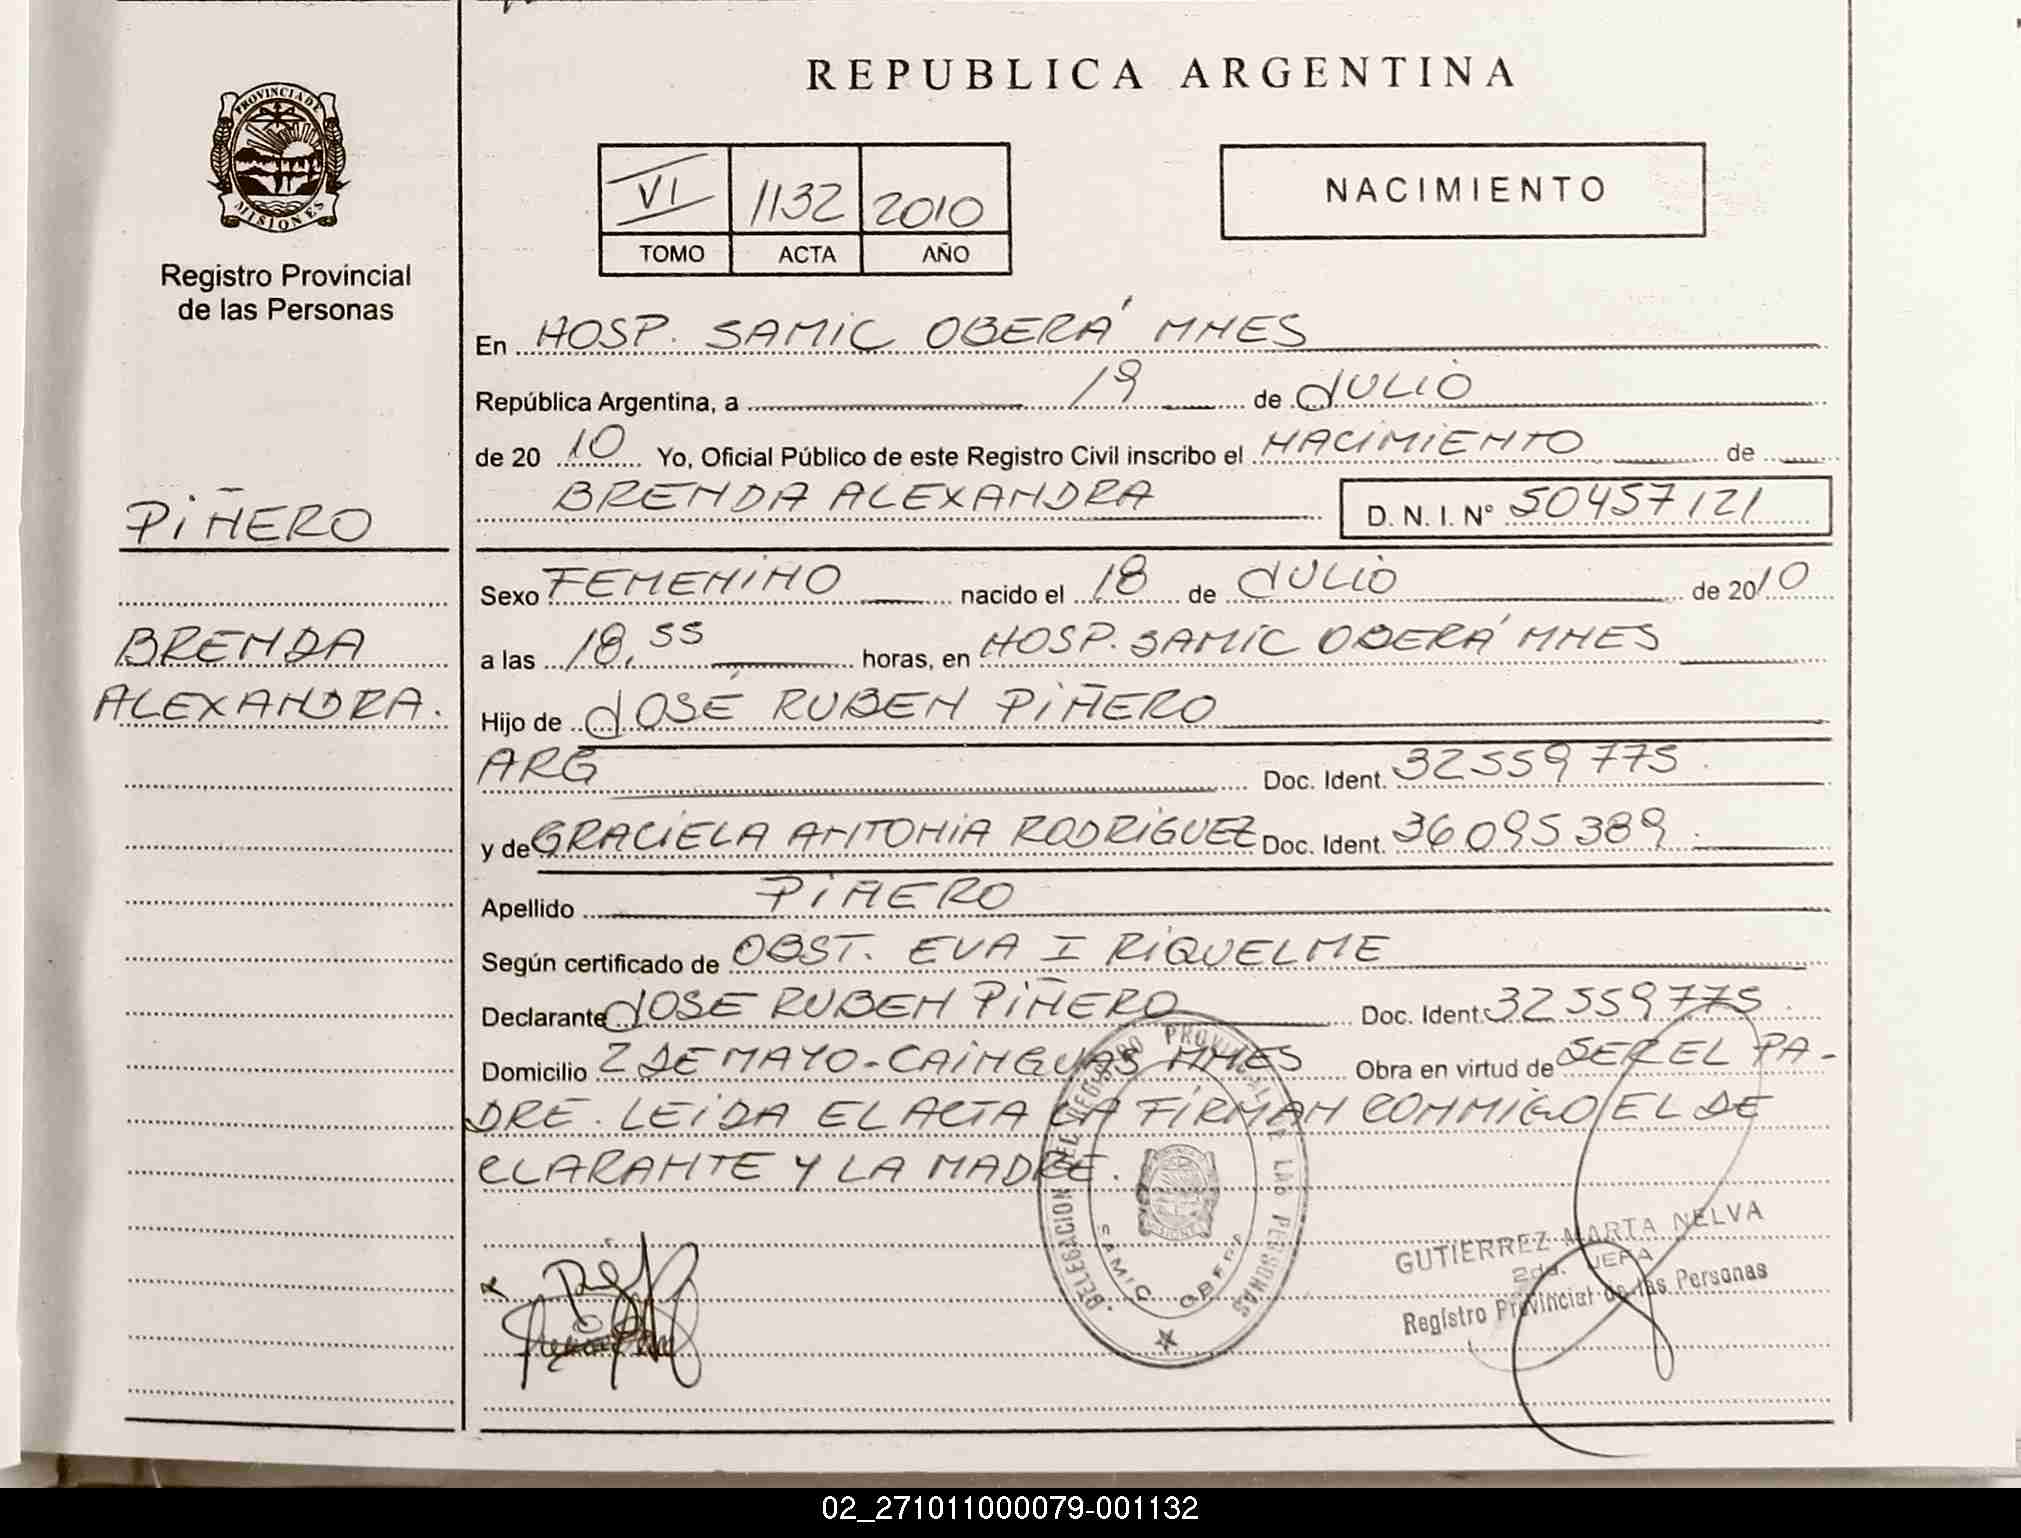 REPUBLICA ARGENTINA
PROVINCIA DE
MISIONES
Registro Provincial
de las Personas
VI 1132 2010
TOMO ACTA AÑO
NACIMIENTO
En HOSP. SAMIC OBERÁ MNES
República Argentina, a 19 de JULIO
de 20 10 Yo, Oficial Público de este Registro Civil inscribo el NACIMIENTO de
BRENDA ALEXANDRA D. N. I. N° 50457121
PIÑERO
BRENDA
ALEXANDRA.
Sexo FEMENINO nacido el 18 de JULIO de 2010
a las 18,55 horas, en HOSP. SAMIC OBERÁ MNES
Hijo de JOSÉ RUBEN PIÑERO
ARG Doc. Ident. 32559775.
y de GRACIELA ANTONIA RODRIGUEZ Doc. Ident. 36095389.
Apellido PIÑERO
Según certificado de OBST. EVA I RIQUELME
Declarante JOSE RUBEN PIÑERO Doc. Ident. 32559775.
Domicilio 2 DE MAYO-CAINGUAS MNES Obra en virtud de SER EL PA-
DRE. LEIDA EL ACTA LA FIRMAN CONMIGO EL DE
CLARANTE Y LA MADRE.
DELEGACION DEL REGISTRO PROVINCIAL DE LAS PERSONAS
SAMIC OBERA
GUTIERREZ MARTA NELVA
2da. JEFA
Registro Provincial de las Personas
02_271011000079-001132